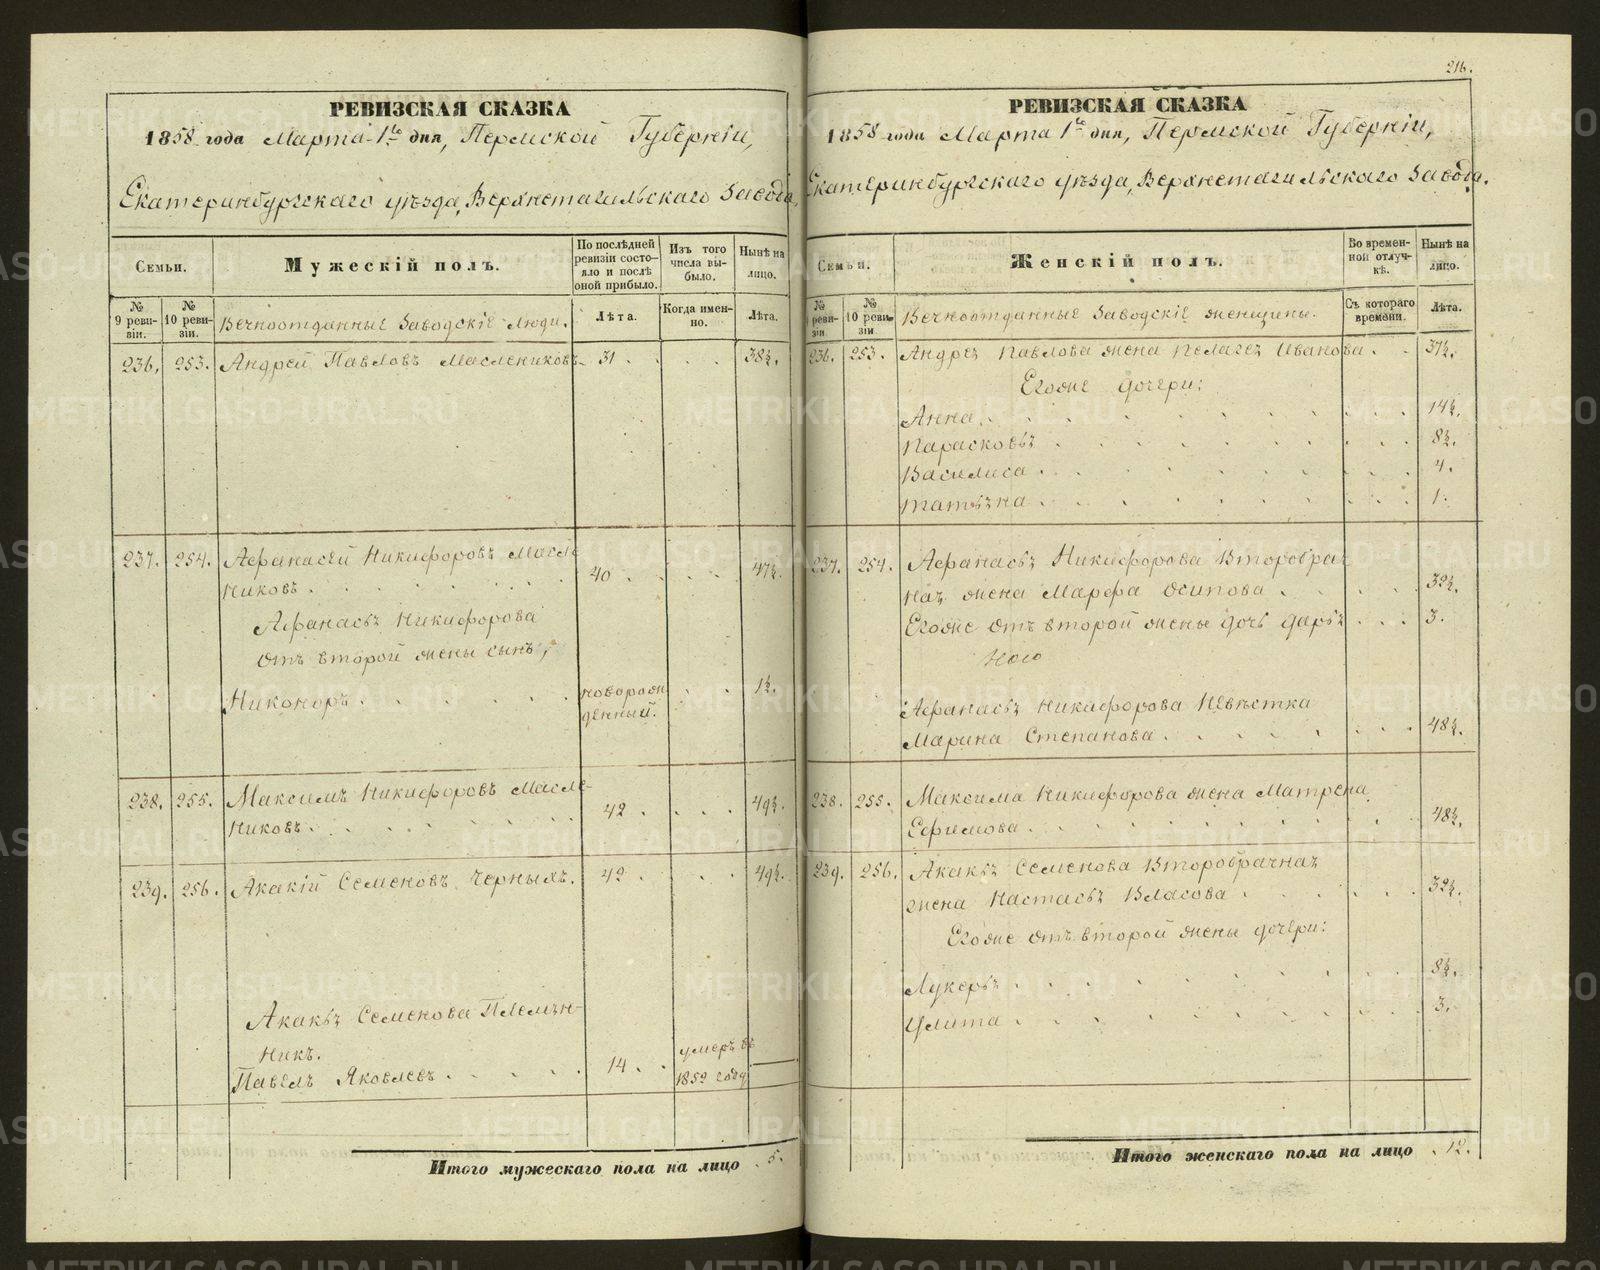 РЕВИЗСКАЯ СКАЗКА
1858 года Марта 1го дня, Пермской Губерніи,
Екатеринбургскаго уѣзда, Верхнетагильскаго Завода,
Семьи.
Мужескій полъ.
По послѣдней ревизіи состояло и послѣ оной прибыло.
Изъ того числа выбыло.
Нынѣ на лицо.
№ 9 ревизіи.
№ 10 ревизіи.
Вечноотданные Заводскіе люди.
Лѣта.
Когда именно.
Лѣта.
236. 253. Андрей Павловъ Маслениковъ 31 38½.
237. 254. Афанасій Никифоровъ Масле
никовъ 40 47½.
Афанасья Никифорова
отъ второй жены сынъ,
Никоноръ новорож
денный. 1½.
238. 255. Максимъ Никифоровъ Масле
никовъ 42 49½.
239. 256. Акакій Семеновъ Черныхъ. 42 49½.
Акакья Семенова Племян
никъ.
Павелъ Яковлевъ 14 умеръ въ
1852 году
Итого мужескаго пола на лицо 5.
216.
РЕВИЗСКАЯ СКАЗКА
1858 года Марта 1го дня, Пермской Губерніи,
Екатеринбургскаго уѣзда, Верхнетагильскаго Завода.
Семьи.
Женскій полъ.
Во временной отлучкѣ.
Нынѣ на лицо.
№ 9 ревизіи
№ 10 ревизіи
Вечноотданные Заводскіе женщины.
Съ котораго времени.
Лѣта.
236. 253. Андрея Павлова жена Пелагея Иванова 37½.
Егоже дочери:
Анна 14½.
Парасковья 8½.
Василиса 4.
Татьяна 1.
237. 254. Афанасья Никифорова Второбрач
ная жена Марфа Осипова 32½.
Егоже отъ второй жены дочь Дарья 3.
Афанасья Никифорова Невѣстка
Марина Степанова 48½.
238. 255. Максима Никифорова жена Матрена
Ефимова 48½.
239. 256. Акакья Семенова Второбрачная
жена Настасья Власова 32½.
Егоже отъ второй жены дочери:
Лукерья 8½.
Улита 3.
Итого женскаго пола на лицо 12.
METRIKI.GASO-URAL.RU